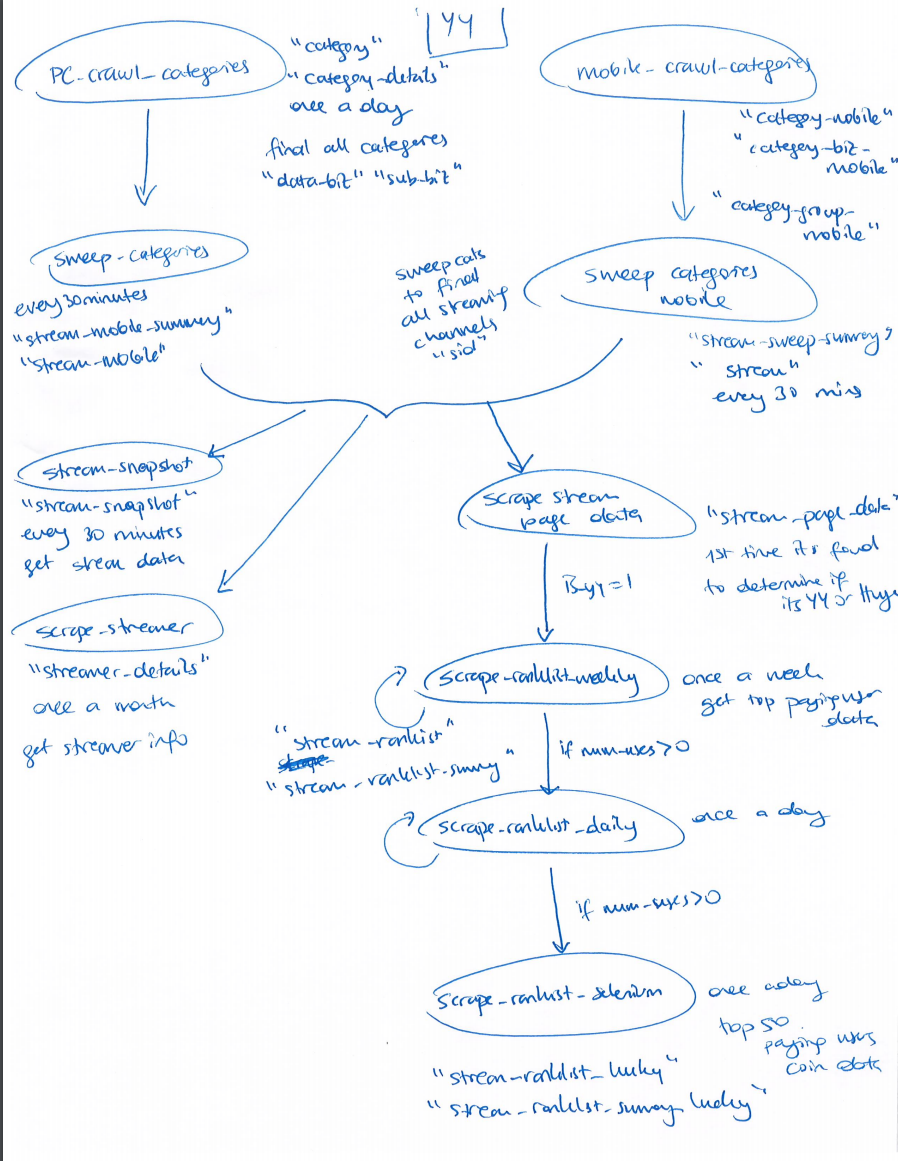 YY
PC-crawl_categories
"category"
"category-details"
once a day
find all categories
"data-biz" "sub-biz"
mobile-crawl-categories
"category-mobile"
"category-biz-
mobile"
"category-group-
mobile"
sweep-categories
every 30 minutes
"stream_mobile_summary"
"stream-mobile"
sweep cats
to find
all streaming
channels
"sid"
sweep categories
mobile
"stream-sweep-summary"
"stream"
every 30 mins
stream-snapshot
"stream-snapshot"
every 30 minutes
get stream data
scrape-streamer
"streamer-details"
once a month
get streamer info
scrape stream
page data
"stream_page_data"
1st time its found
to determine if
its YY or Huya
=1
scrape-ranklist-weekly
once a week
get top paying user
data
"stream-ranklist"
"stream-ranklist-summary"
if num-users>0
scrape-ranklist_daily
once a day
if num-users>0
scrape-ranklist-selenium
once a day
top 50
paying users
coin data
"stream-ranklist_lucky"
"stream_ranklist_summary_lucky"